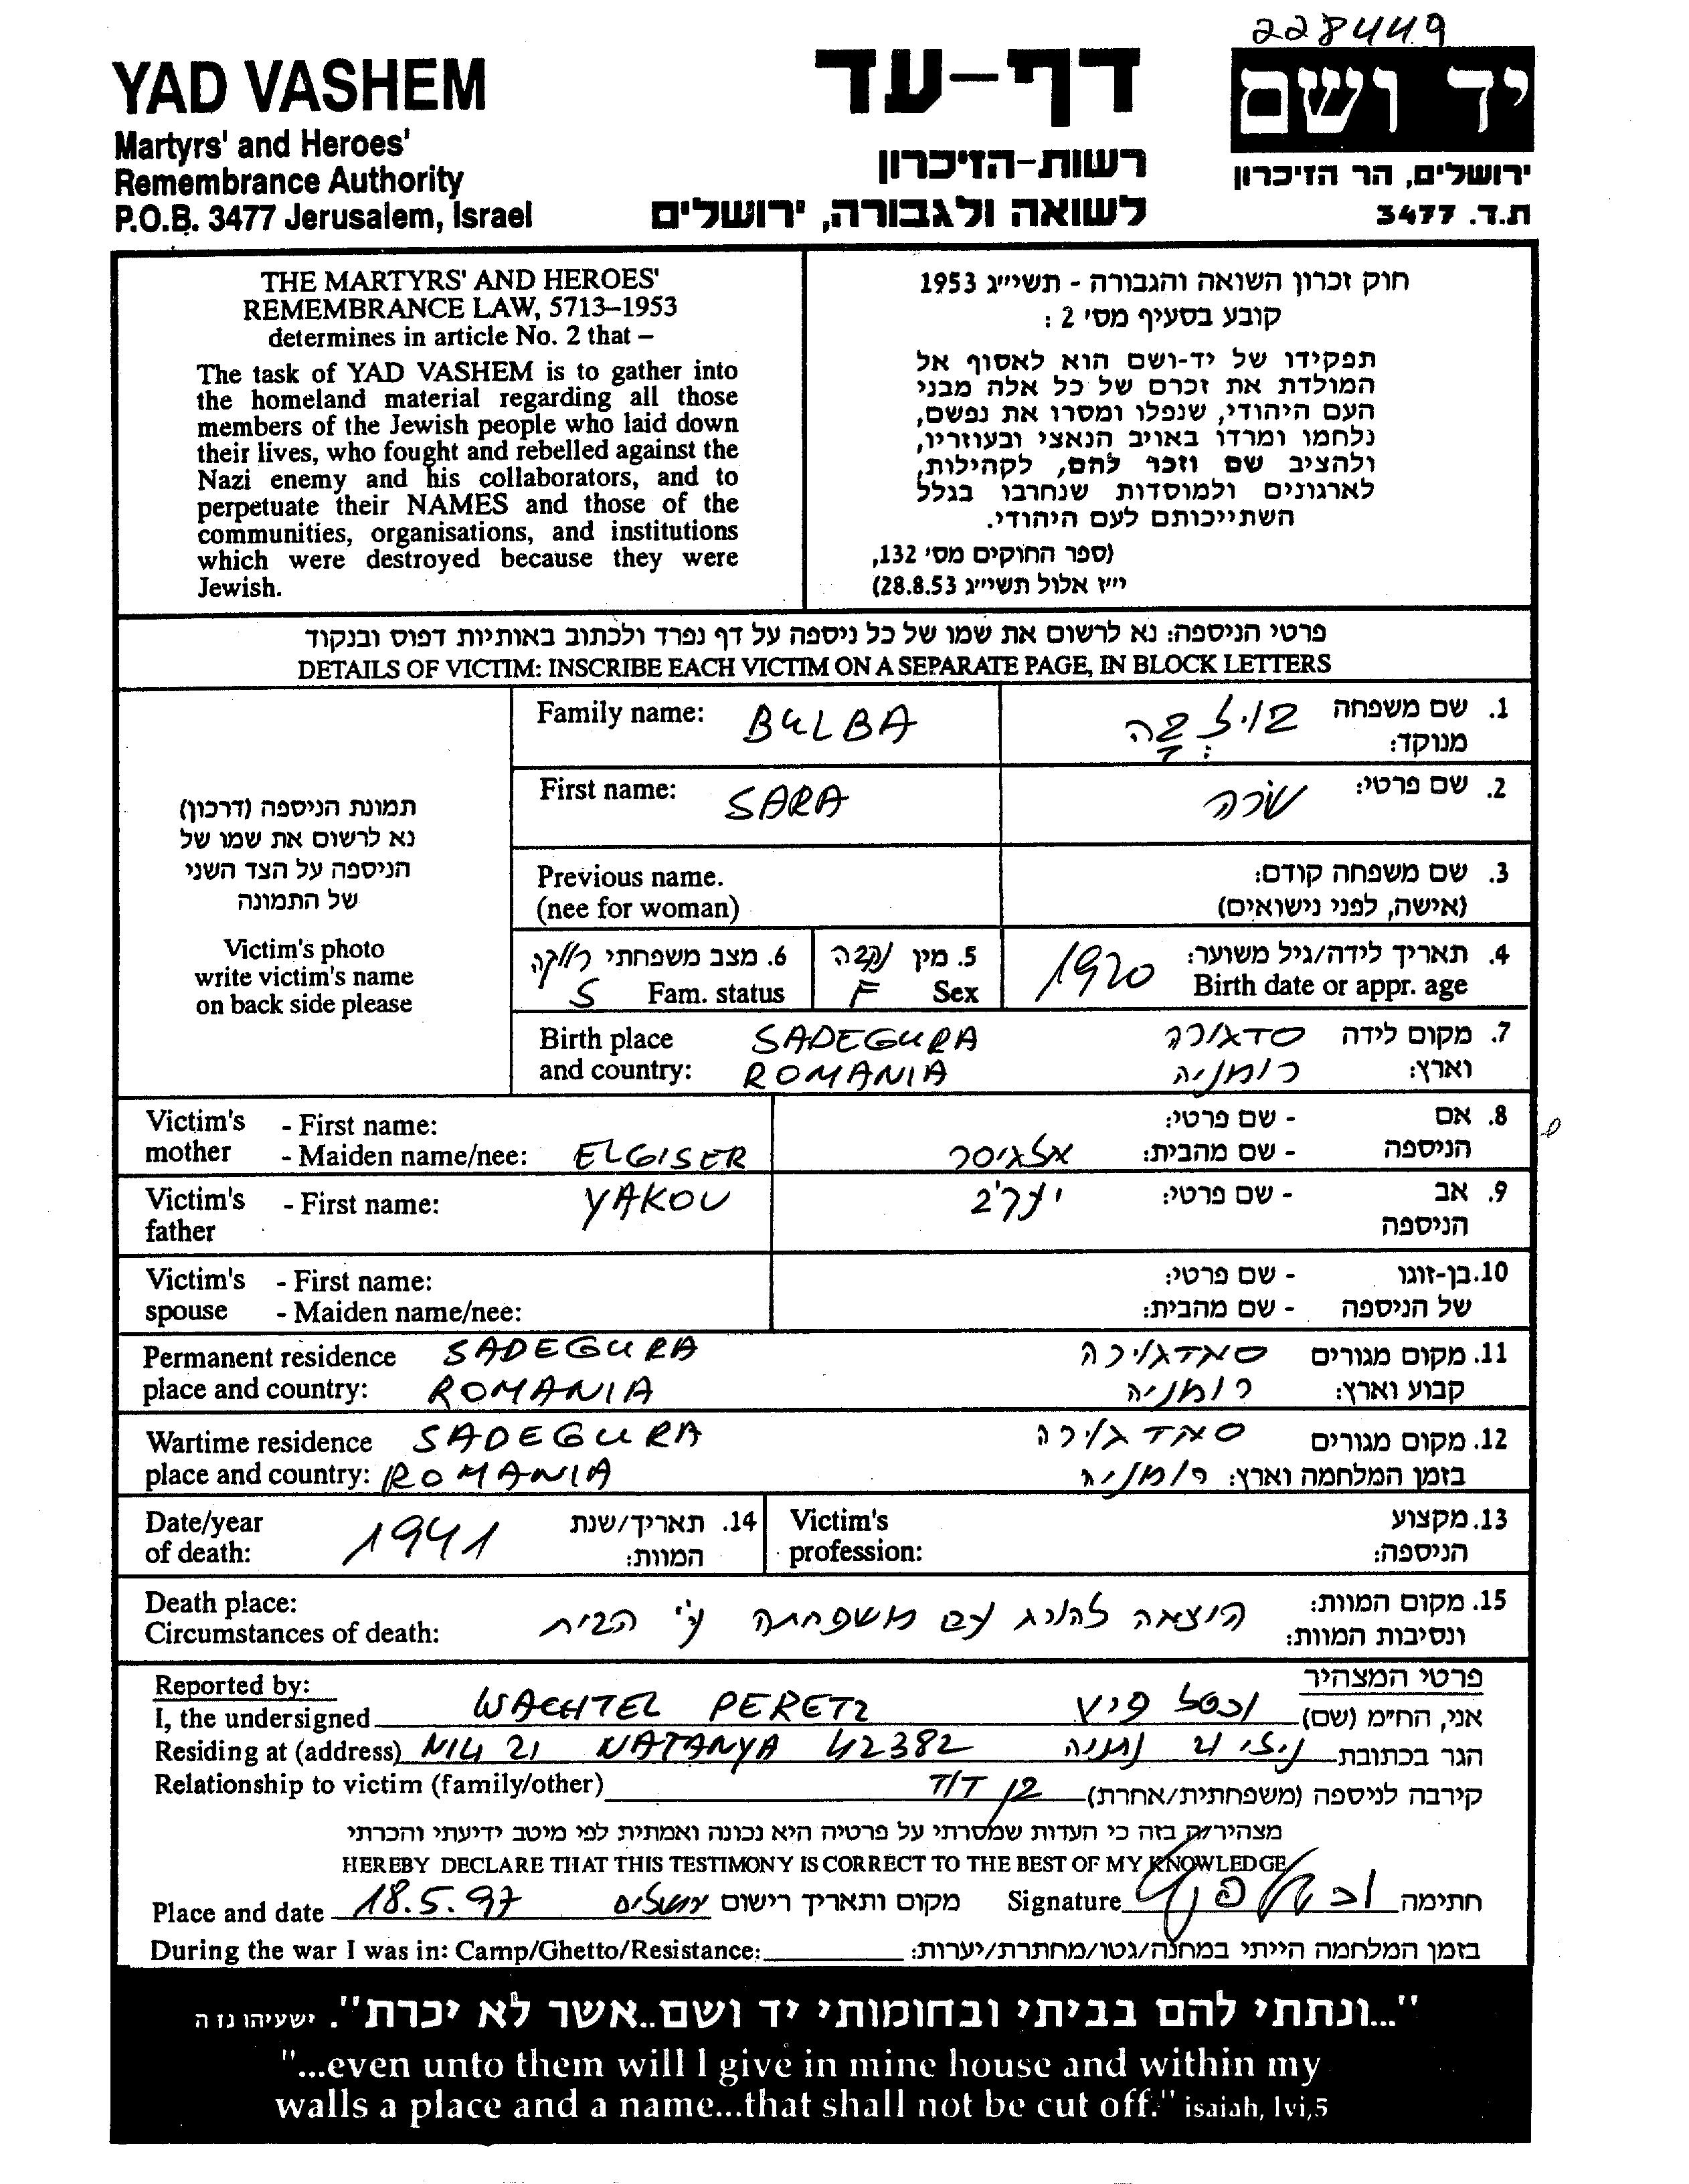 228449
YAD VASHEM
Martyrs' and Heroes'
Remembrance Authority
P.O.B. 3477 Jerusalem, Israel
דף-עד
רשות-הזיכרון
לשואה ולגבורה, ירושלים
יד ושם
ירושלים, הר הזיכרון
ת.ד. 3477
THE MARTYRS' AND HEROES'
REMEMBRANCE LAW, 5713–1953
determines in article No. 2 that –
The task of YAD VASHEM is to gather into
the homeland material regarding all those
members of the Jewish people who laid down
their lives, who fought and rebelled against the
Nazi enemy and his collaborators, and to
perpetuate their NAMES and those of the
communities, organisations, and institutions
which were destroyed because they were
Jewish.
חוק זכרון השואה והגבורה - תשי"ג 1953
קובע בסעיף מס' 2 :
תפקידו של יד-ושם הוא לאסוף אל
המולדת את זכרם של כל אלה מבני
העם היהודי, שנפלו ומסרו את נפשם,
נלחמו ומרדו באויב הנאצי ובעוזריו,
ולהציב שם וזכר להם, לקהילות,
לארגונים ולמוסדות שנחרבו בגלל
השתייכותם לעם היהודי.
(ספר החוקים מס' 132,
י"ז אלול תשי"ג 28.8.53)
פרטי הניספה: נא לרשום את שמו של כל ניספה על דף נפרד ולכתוב באותיות דפוס ובנקוד
DETAILS OF VICTIM: INSCRIBE EACH VICTIM ON A SEPARATE PAGE, IN BLOCK LETTERS
תמונת הניספה (דרכון)
נא לרשום את שמו של
הניספה על הצד השני
של התמונה
Victim's photo
write victim's name
on back side please
Family name: BULBA בולבה 1. שם משפחה
מנוקד:
First name: SARA שרה 2. שם פרטי:
Previous name. 3. שם משפחה קודם:
(nee for woman) (אישה, לפני נישואים)
4. תאריך לידה/גיל משוער: 1920
Birth date or appr. age
5. מין נקבה
F Sex
6. מצב משפחתי רווקה
S Fam. status
Birth place SADEGURA סדגורה 7. מקום לידה
and country: ROMANIA רומניה וארץ:
Victim's - First name: - שם פרטי: 8. אם
mother - Maiden name/nee: ELGISER אלגיסר - שם מהבית: הניספה
Victim's - First name: YAKOV יעקב - שם פרטי: 9. אב
father הניספה
Victim's - First name: - שם פרטי: 10. בן-זוגו
spouse - Maiden name/nee: - שם מהבית: של הניספה
Permanent residence SADEGURA סאדגורה 11. מקום מגורים
place and country: ROMANIA רומניה קבוע וארץ:
Wartime residence SADEGURA סאדגורה 12. מקום מגורים
place and country: ROMANIA רומניה בזמן המלחמה וארץ:
Date/year 1941 14. תאריך/שנת
of death: המוות:
Victim's 13. מקצוע
profession: הניספה:
Death place: 15. מקום המוות:
Circumstances of death: הוצאה להורג עם משפחתה ע"י הבית ונסיבות המוות:
Reported by: פרטי המצהיר
I, the undersigned WACHTEL PERETZ וכטל פרץ אני, הח"מ (שם)
Residing at (address) NILI 21 NATANYA 42382 נילי 21 נתניה הגר בכתובת
Relationship to victim (family/other) בן דוד קירבה לניספה (משפחתית/אחרת)
מצהיר/ה בזה כי העדות שמסרתי על פרטיה היא נכונה ואמתית לפי מיטב ידיעתי והכרתי
HEREBY DECLARE THAT THIS TESTIMONY IS CORRECT TO THE BEST OF MY KNOWLEDGE
Place and date 18.5.97 ירושלים מקום ותאריך רישום Signature וכטל פרץ חתימה
During the war I was in: Camp/Ghetto/Resistance: בזמן המלחמה הייתי במחנה/גטו/מחתרת/יערות:
"...ונתתי להם בביתי ובחומותי יד ושם..אשר לא יכרת". ישעיהו נו ה
"...even unto them will I give in mine house and within my
walls a place and a name...that shall not be cut off." isaiah, lvi,5